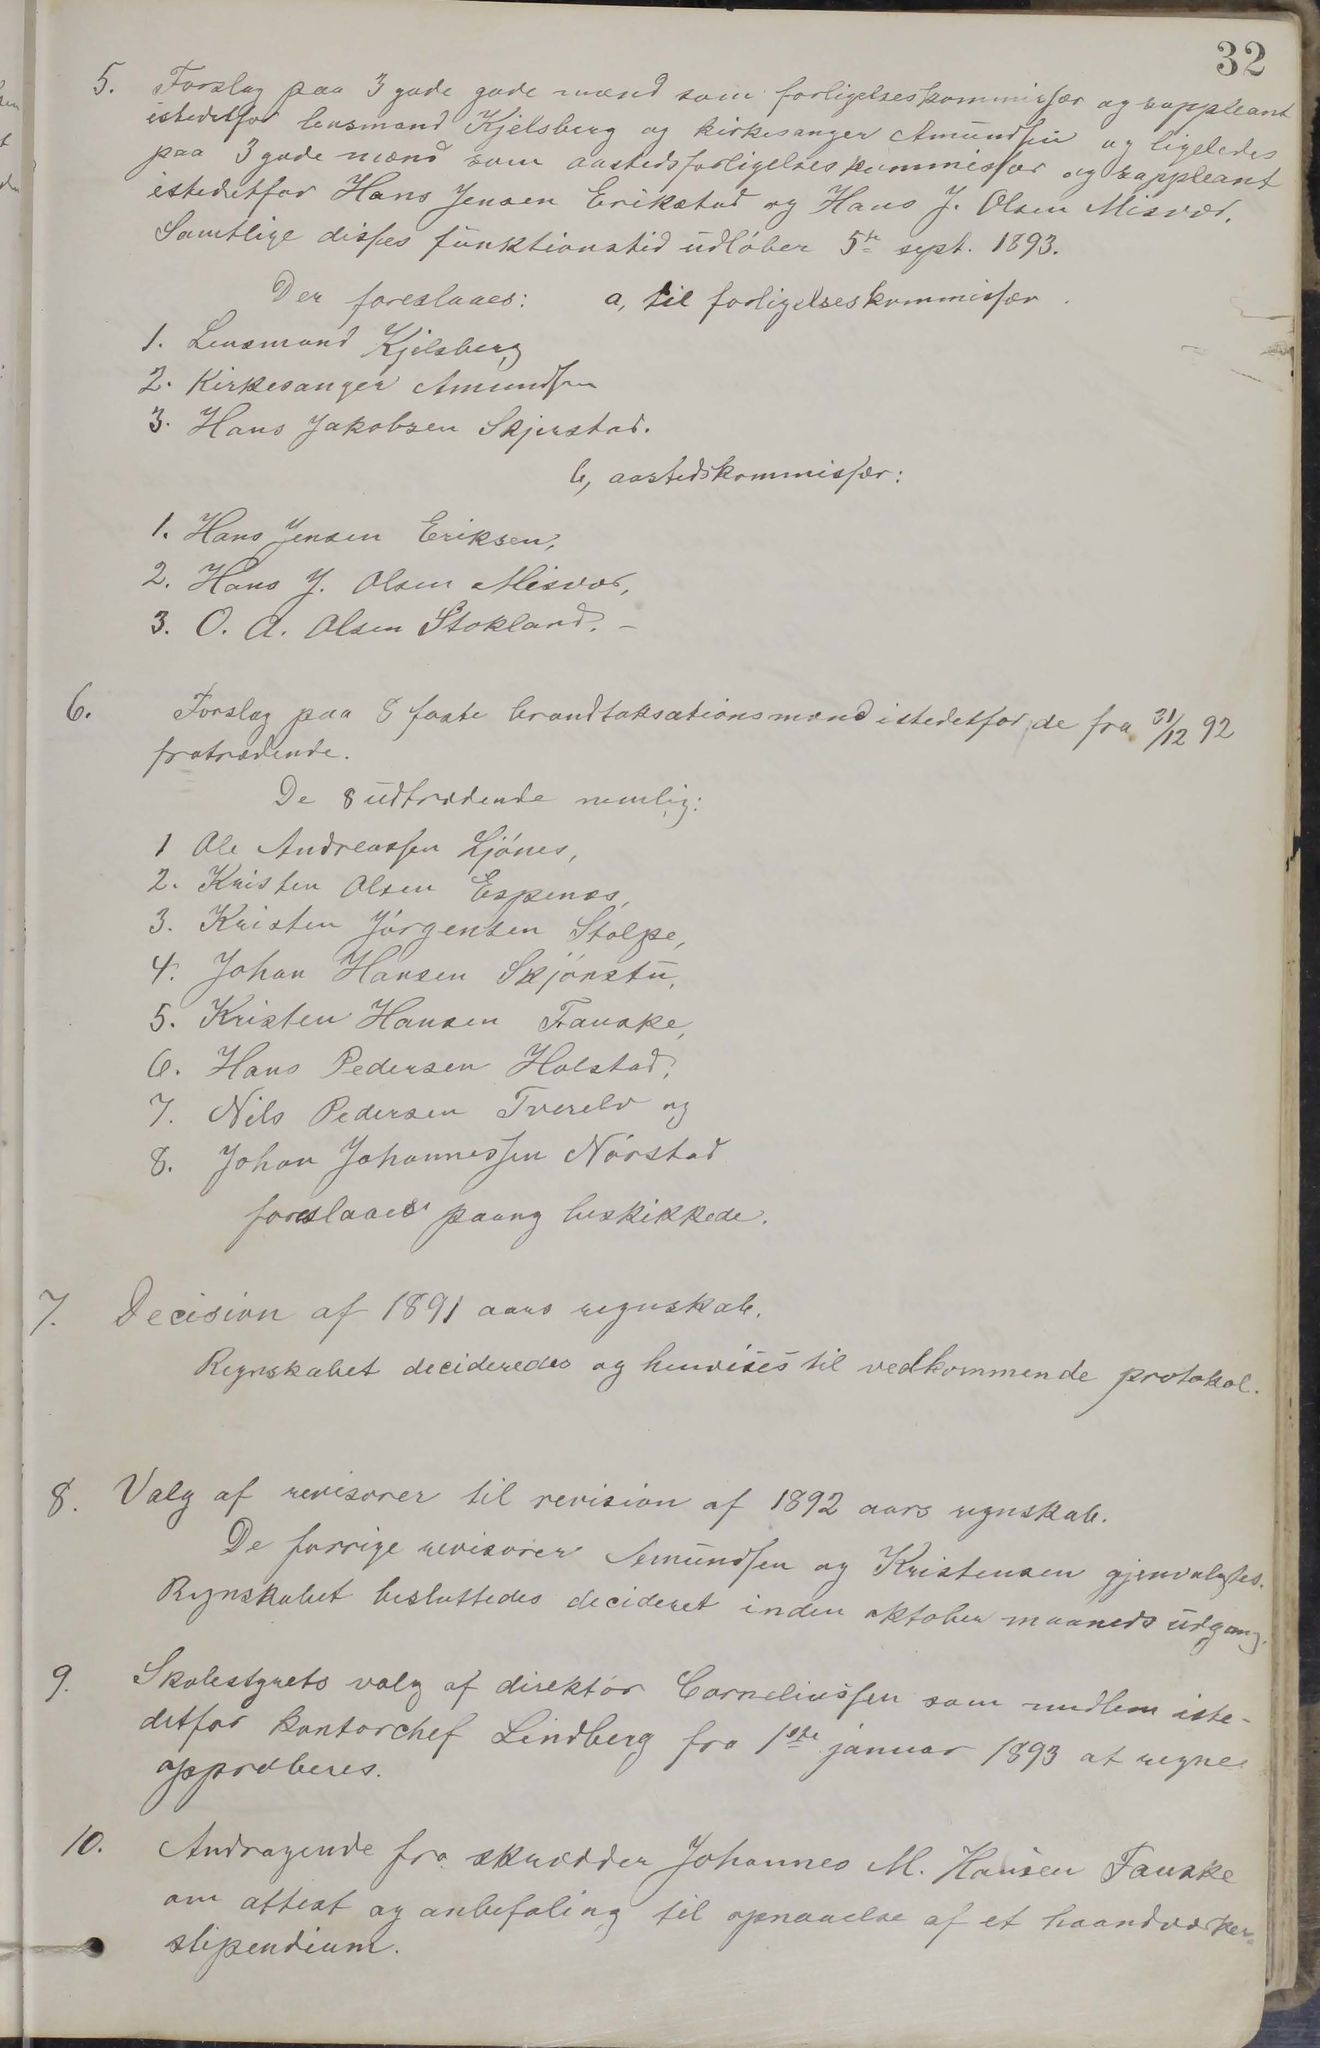 32
5. Forslag paa 3 gode gode mænd som forligelseskommissær og suppleant
istedetfor lensmand Kjelsberg og kirkesanger Amundsen og ligeledes
paa 3 gode mænd som aastedsforligelseskommissær og suppleant
istedetfor Hans Jensen Erikstad og Hans J. Olsen Misvær.
Samtlige disses funktionstid udløber 5te sept. 1893.
Der foreslaaes: a, til forligelseskommissær.
1. Lensmand Kjelsberg
2. Kirkesanger Amundsen
3. Hans Jakobsen Skjerstad.
b, aastedskommissær:
1. Hans Jensen Eriksen,
2. Hans J. Olsen Misvær,
3. O. A. Olsen Stokland. –
6. Forslag paa 8 faste brandtaksationsmænd istedetfor de fra 31/12 92
fratrædende.
De 8 udtrædende nemlig:
1 Ole Andreassen Ljónes,
2. Kristen Olsen Espenes,
3. Kristen Jórgensen Stolpe,
4. Johan Hansen Skjónstu,
5. Kristen Hansen Fauske,
6. Hans Pedersen Holstad,
7. Nils Pedersen Tverelv og
8. Johan Johannessen Nórstad
foreslaaes paany beskikkede.
7. Decision af 1891 aars regnskab.
Regnskabet decideredes og henvises til vedkommende protokol.
8. Valg af revisorer til revision af 1892 aars regnskab.
De forrige revisorer Amundsen og Kristensen gjenvalgtes.
Regnskabet besluttedes decideret inden oktober maaneds udgang.
9. Skolestyrets valg af direktór Corneliussen som medlem iste-
detfor kontorchef Lindberg fra 1ste januar 1893 at regne
approberes.
10. Andragende fra skrædder Johannes M. Hansen Fauske
om attest og anbefaling til opnaaelse af et haandværker-
stipendium.